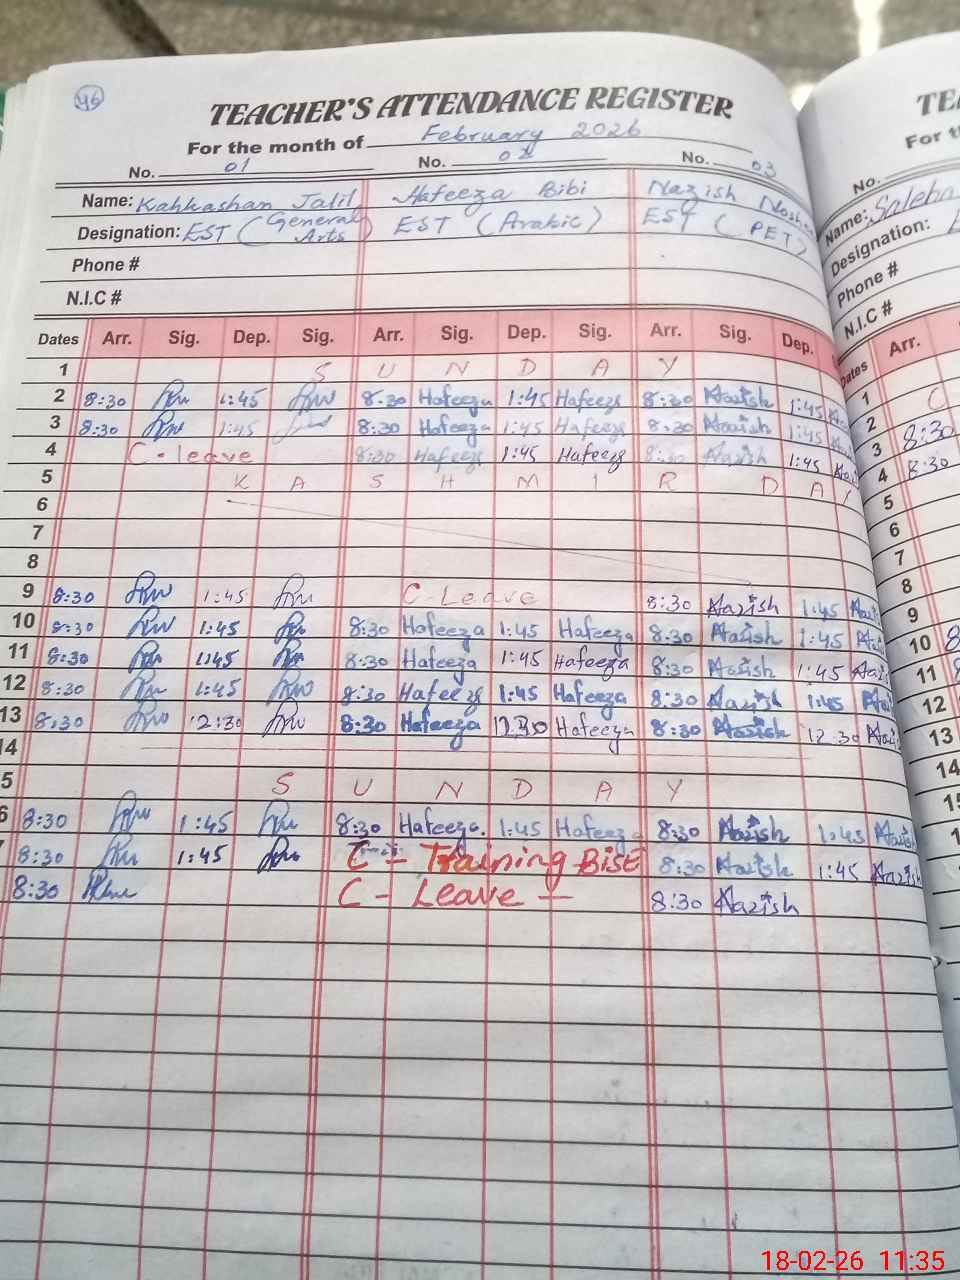 46
TEACHER'S ATTENDANCE REGISTER
For the month of February 2026
No. 01 No. 02 No. 03
Name: Kahkashan Jalil Hafeeza Bibi Nazish
Designation: EST (General Arts) EST (Arabic) EST (PET)
Phone #
N.I.C #
Dates Arr. Sig. Dep. Sig. Arr. Sig. Dep. Sig. Arr. Sig. Dep.
1 S U N D A Y
2 8:30 1:45 8:30 Hafeeza 1:45 Hafeeza 8:30 Nazish 1:45
3 8:30 1:45 8:30 Hafeeza 1:45 Hafeeza 8:30 Nazish 1:45
4 C-leave 8:30 Hafeeza 1:45 Hafeeza 8:30 Nazish 1:45
5 K A S H M I R D A Y
6
7
8
9 8:30 1:45 C-Leave 8:30 Nazish 1:45
10 8:30 1:45 8:30 Hafeeza 1:45 Hafeeza 8:30 Nazish 1:45
11 8:30 1:45 8:30 Hafeeza 1:45 Hafeeza 8:30 Nazish 1:45
12 8:30 1:45 8:30 Hafeeza 1:45 Hafeeza 8:30 Nazish 1:45
13 8:30 12:30 8:30 Hafeeza 12.30 Hafeeza 8:30 Nazish 12.30
14
5 S U N D A Y
6 8:30 1:45 8:30 Hafeeza. 1:45 Hafeeza 8:30 Nazish 1:45
8:30 1:45 C - Training BISE 8:30 Nazish 1:45 Nazish
8:30 C - Leave — 8:30 Nazish
TE
For t
No.
Name: Saleha
Designation:
Phone #
N.I.C #
Dates Arr.
1
2
3 8:30
4 8:30
5
6
7
8
9
10 8
11
12
13
14
15
18-02-26 11:35